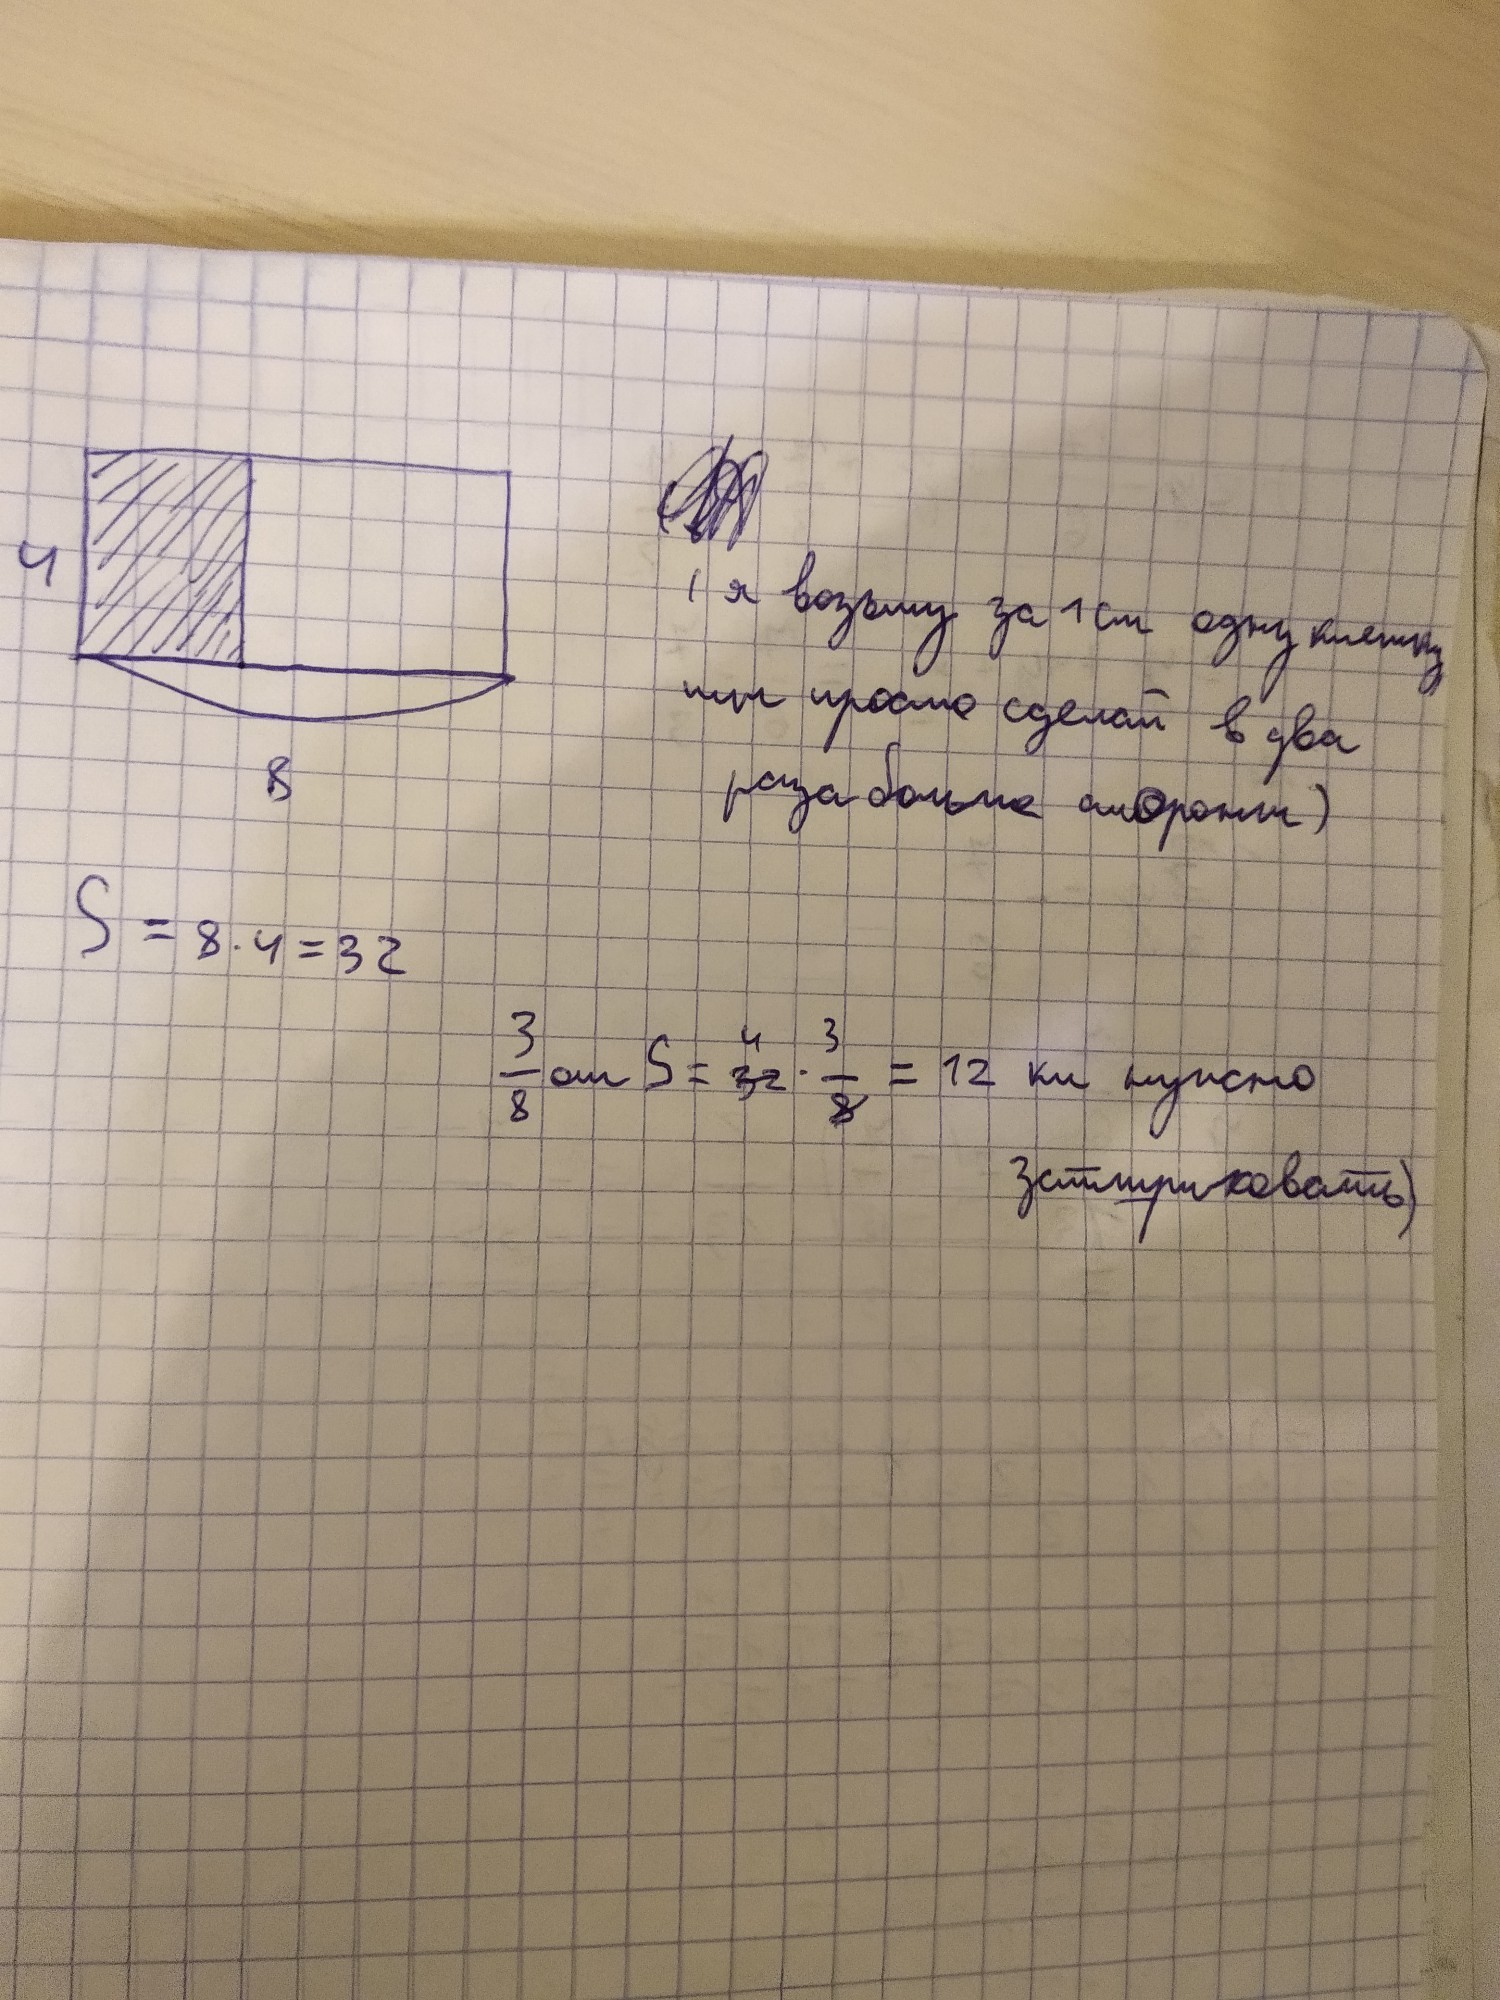 4
8
( я возьму за 1 см одну клетку
ты просто сделай в два
раза больше стороны)
S = 8 · 4 = 32
3/8 от S = 32 4 · 3/8 = 12 кл нужно
заштриховать)